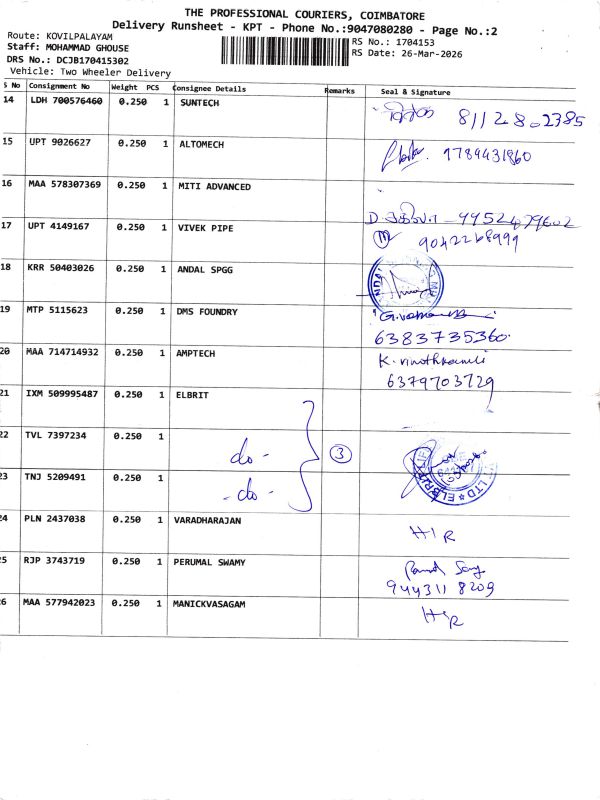 THE PROFESSIONAL COURIERS, COIMBATORE
Delivery Runsheet - KPT - Phone No.:9047080280 - Page No.:2
Route: KOVILPALAYAM
RS No.: 1704153
Staff: MOHAMMAD GHOUSE
RS Date: 26-Mar-2026
DRS No.: DCJB170415302
Vehicle: Two Wheeler Delivery
S No Consignment No Weight PCS Consignee Details Remarks Seal & Signature
14 LDH 700576460 0.250 1 SUNTECH 8112802385
15 UPT 9026627 0.250 1 ALTOMECH 9789431860
16 MAA 578307369 0.250 1 MITI ADVANCED
D. 9952479602
17 UPT 4149167 0.250 1 VIVEK PIPE 9042268999
18 KRR 50403026 0.250 1 ANDAL SPGG
19 MTP 5115623 0.250 1 DMS FOUNDRY
6383735360
20 MAA 714714932 0.250 1 AMPTECH K. vinothkumar
6379703729
21 IXM 509995487 0.250 1 ELBRIT
22 TVL 7397234 0.250 1 -do- 3
23 TNJ 5209491 0.250 1 -do-
24 PLN 2437038 0.250 1 VARADHARAJAN H/R
25 RJP 3743719 0.250 1 PERUMAL SWAMY
9443118209
26 MAA 577942023 0.250 1 MANICKVASAGAM H/R